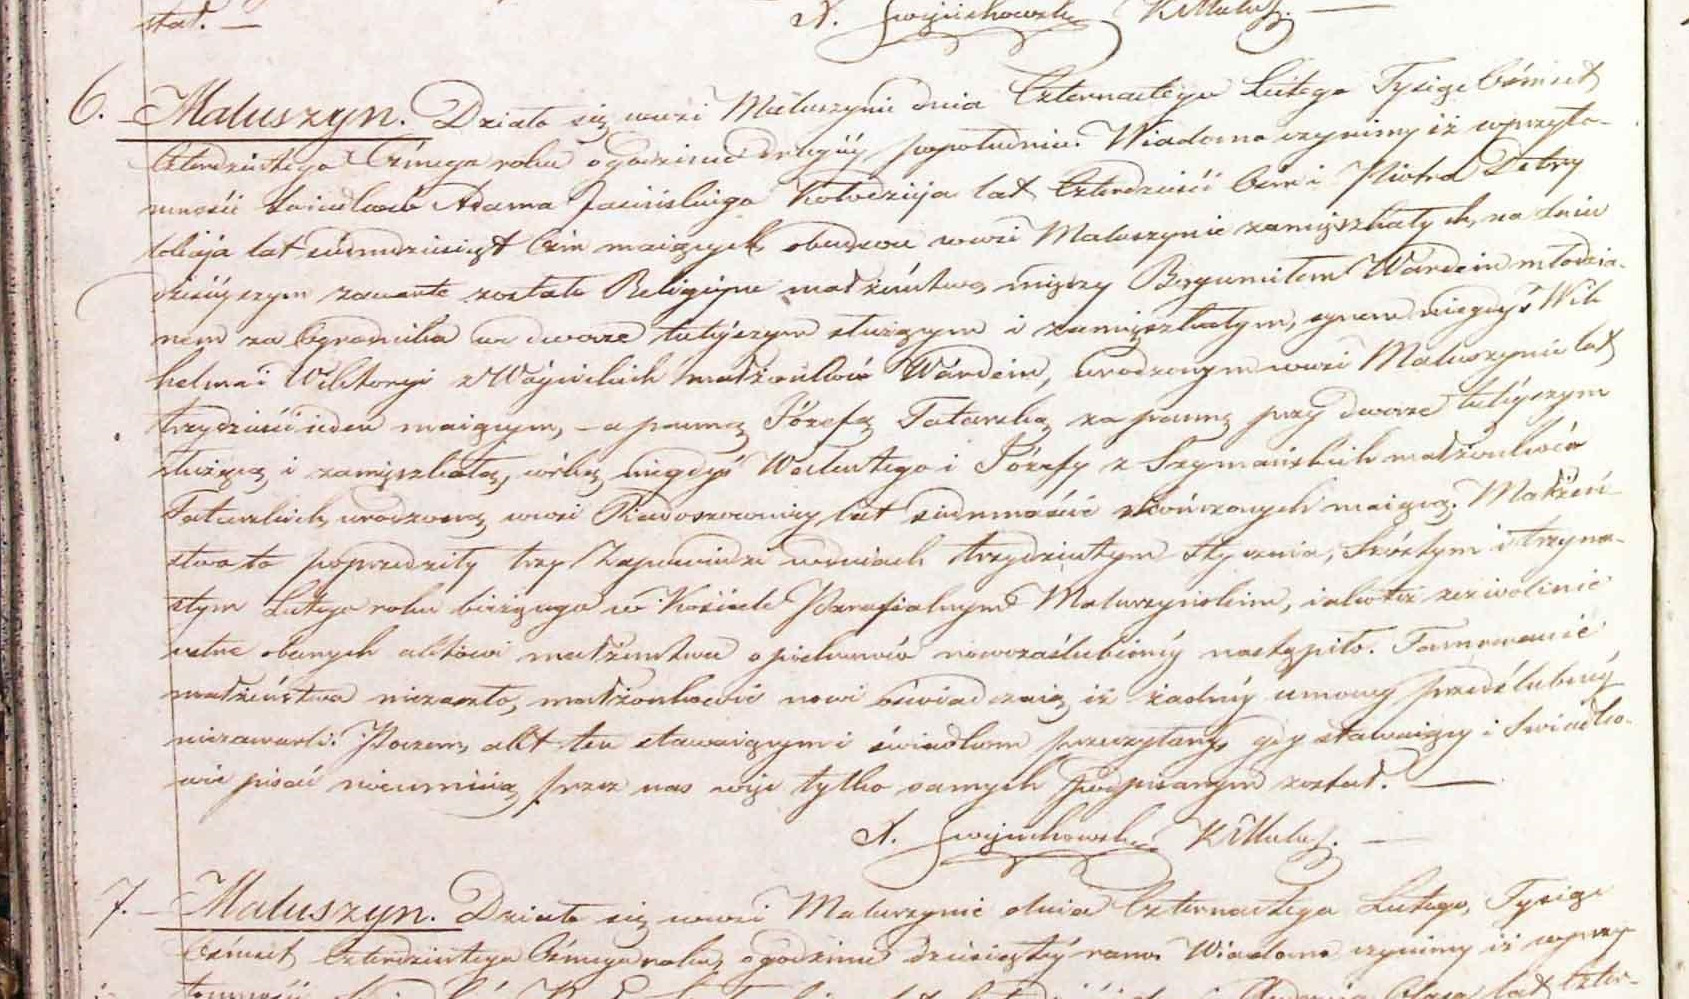 stał. —
N. Zwoyuchowski KMalusz. —
6. Maluszyn. Działo się wwsi Maluszynie dnia Czternastego Lutego Tysiąc Ośmset
Czterdziestego Ósmego roku o godzinie drugiéy popołudniu. Wiadomo czynimy iż wprzyto-
mności świadków Adama Jasińskiego Kołodzieja lat Czterdzieści Ośm i Piotra
lat siedmdziesiąt Ośm maiących, obudwu wwsi Maluszynie zamięszkałych, na dniu
dzisiéyszym zawarte zostało Religijne małżeństwo, między Bogumiłem Wardein młodzia-
nem za Ogrodnika we dworze tutéyszym służącym i zamięszkałym, synem niegdyś Wil
helma i Wiktoryi z Wóycickich małżonków Wardein, urodzonym wwsi Maluszynie lat
trzydzieści ieden maiącym, — a panną Józefą Tatarską za pannę przy dworze tutéyszym
służącą i zamięszkałą, córką niegdyś Walentego i Józefy z Szymańskich małżonków
Tatarskich, urodzoną wwsi Radoszewnicy lat siedmnaście skończonych maiącą. Małżeń-
stwo to poprzedziły trzy Zapowiedzi wdniach trzydziestym Stycznia, Szóstym i trzyna-
stym Lutego roku bieżącego w Kościele Parafialnym Maluszyńskim, iakotéż zezwolenie
ustne obecnych aktowi małżeństwa opiekunów nowozaślubionéy nastąpiło. Tamowanie
małżeństwa niezaszło, małżonkowie nowi oświadczaią, iż żadnéy umowy przedślubnéy
niezawarli. Poczem, akt ten stawaiącymi i świadkom przeczytany, gdy stawaiący i Świadko-
wie pisać nieumieią, przez nas więc tylko samych podpisanym został. —
N. Zwoyuchowski KMalusz. —
7. — Maluszyn. Działo się wwsi Maluszynie dnia Czternastego Lutego, Tysiąc
Ośmset Czterdziestego Ósmego roku, o godzinie dziesiątéy rano. Wiadomo czynimy iż wprzy
tomności lat Czter-